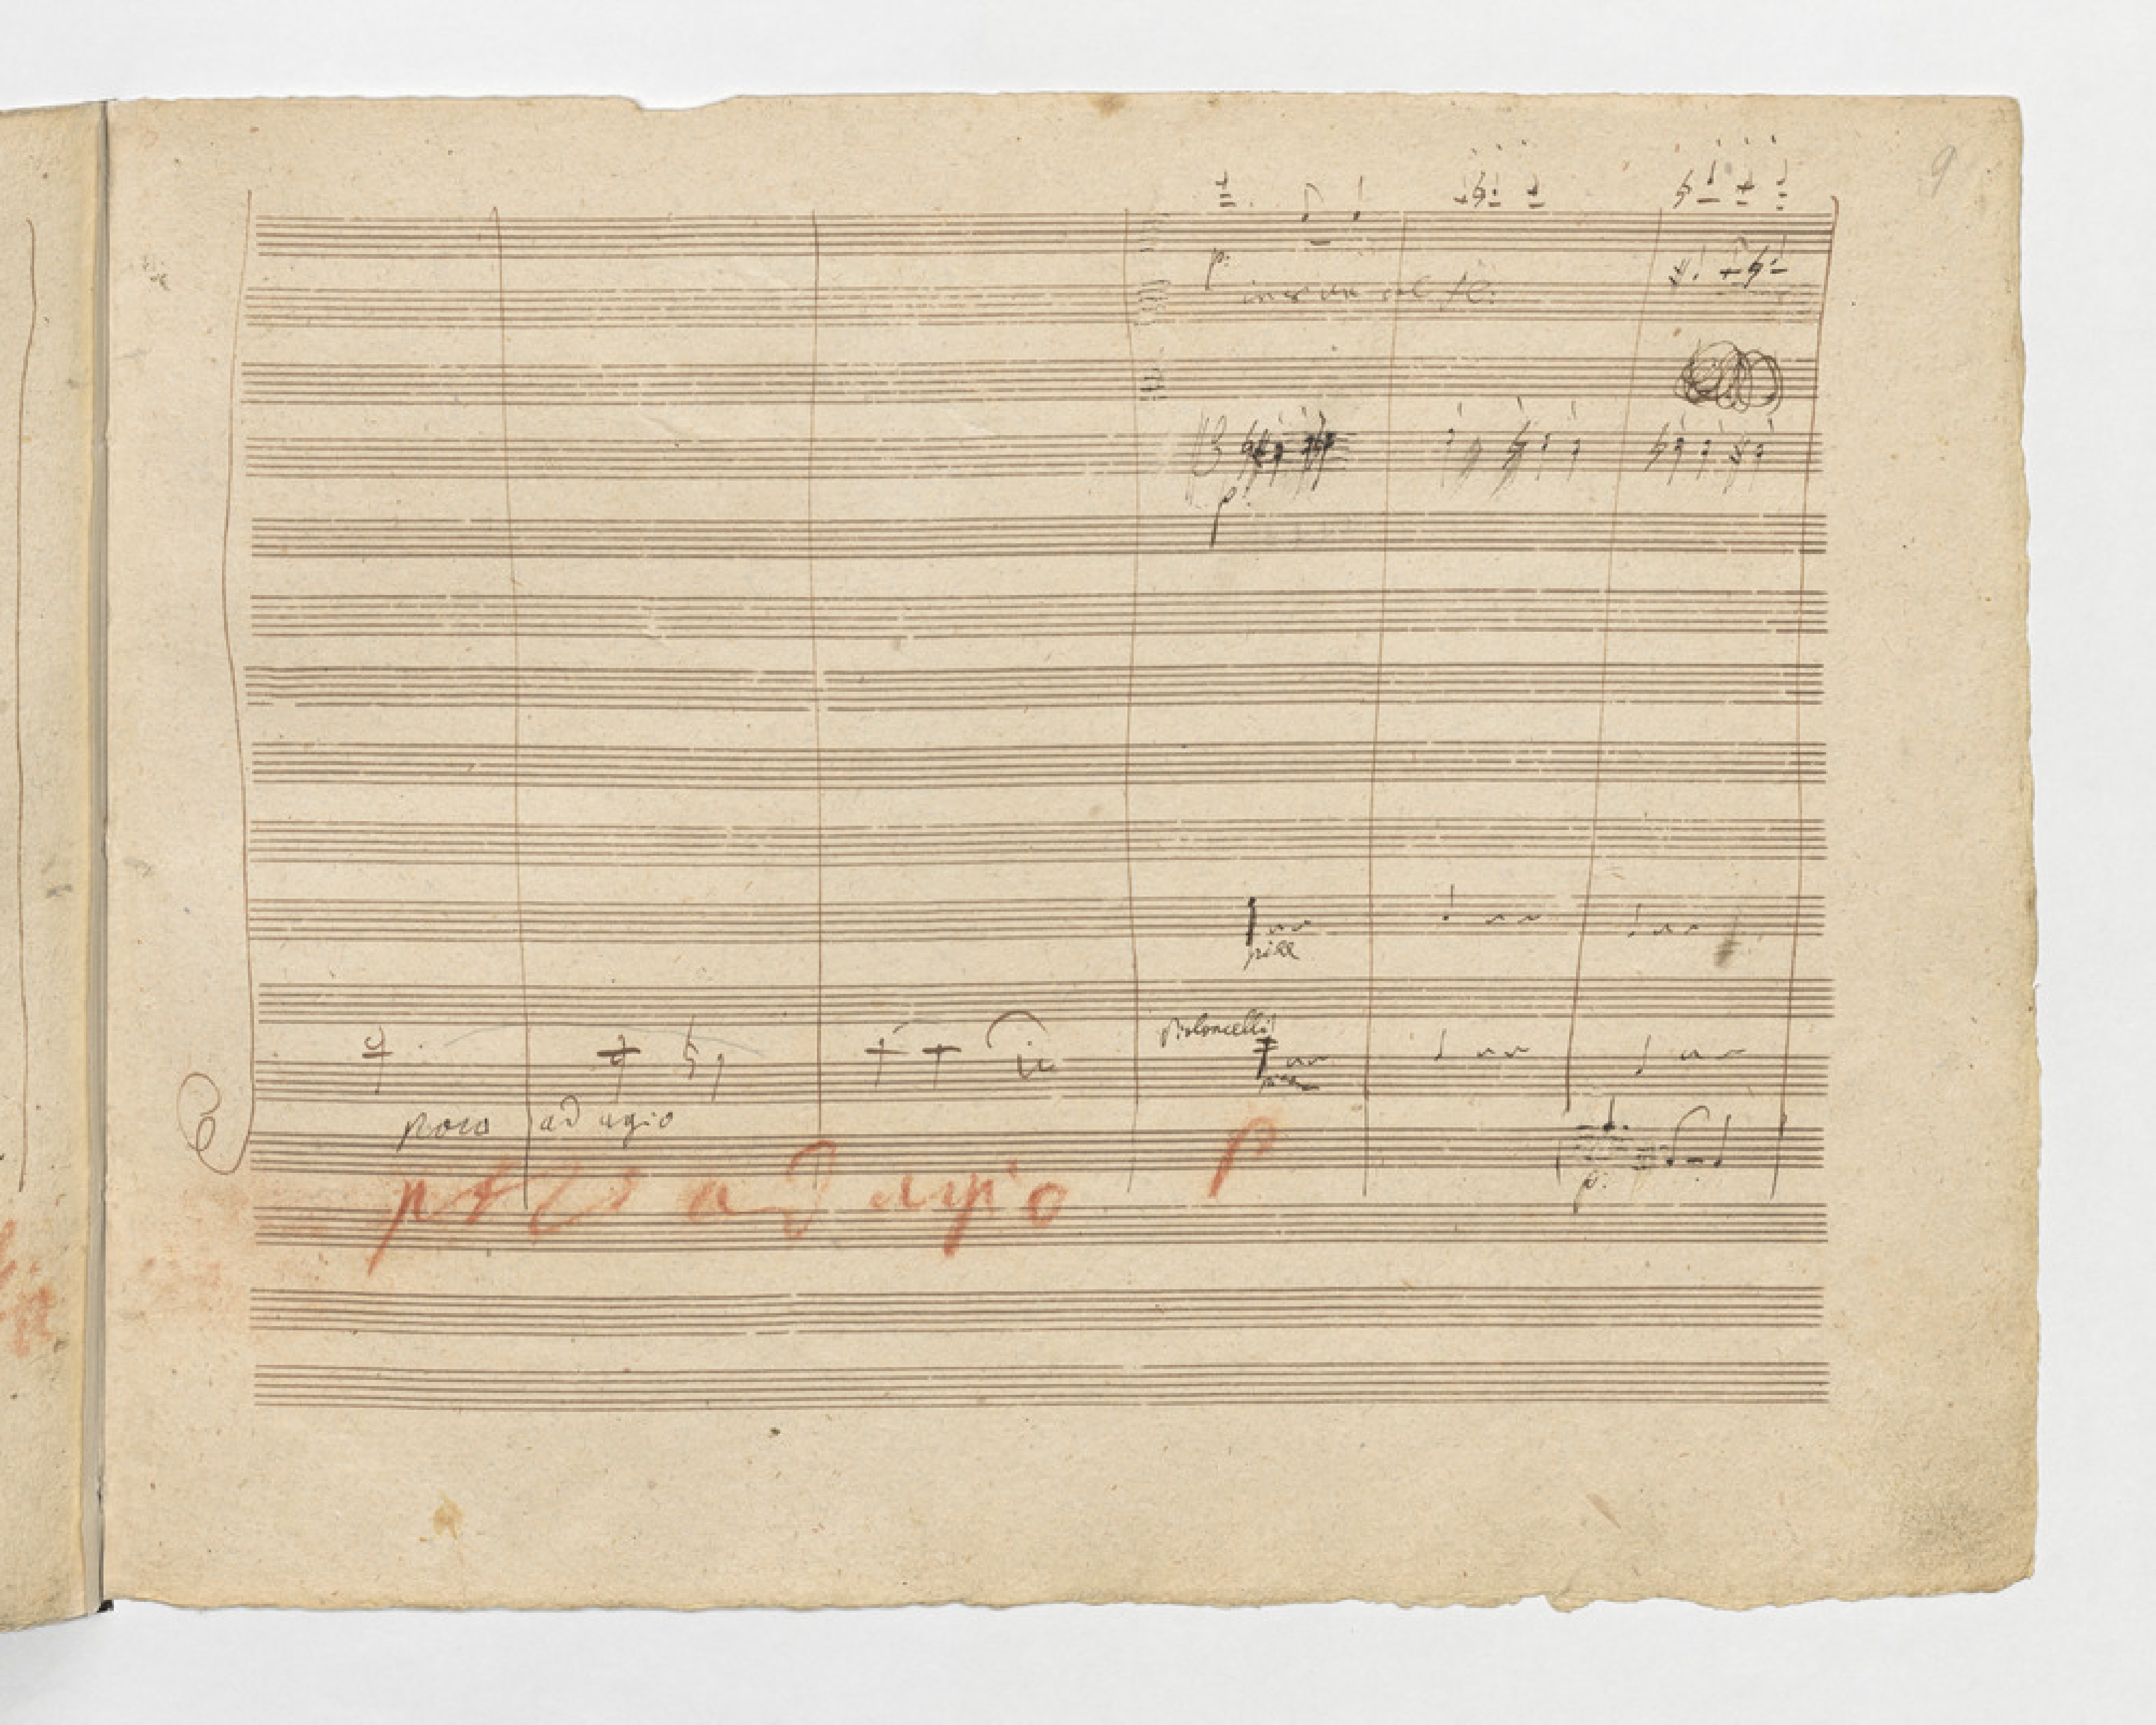 9
p:
p:
pizz
Violoncelli
pizz
poco adagio
poco adagio p
p: